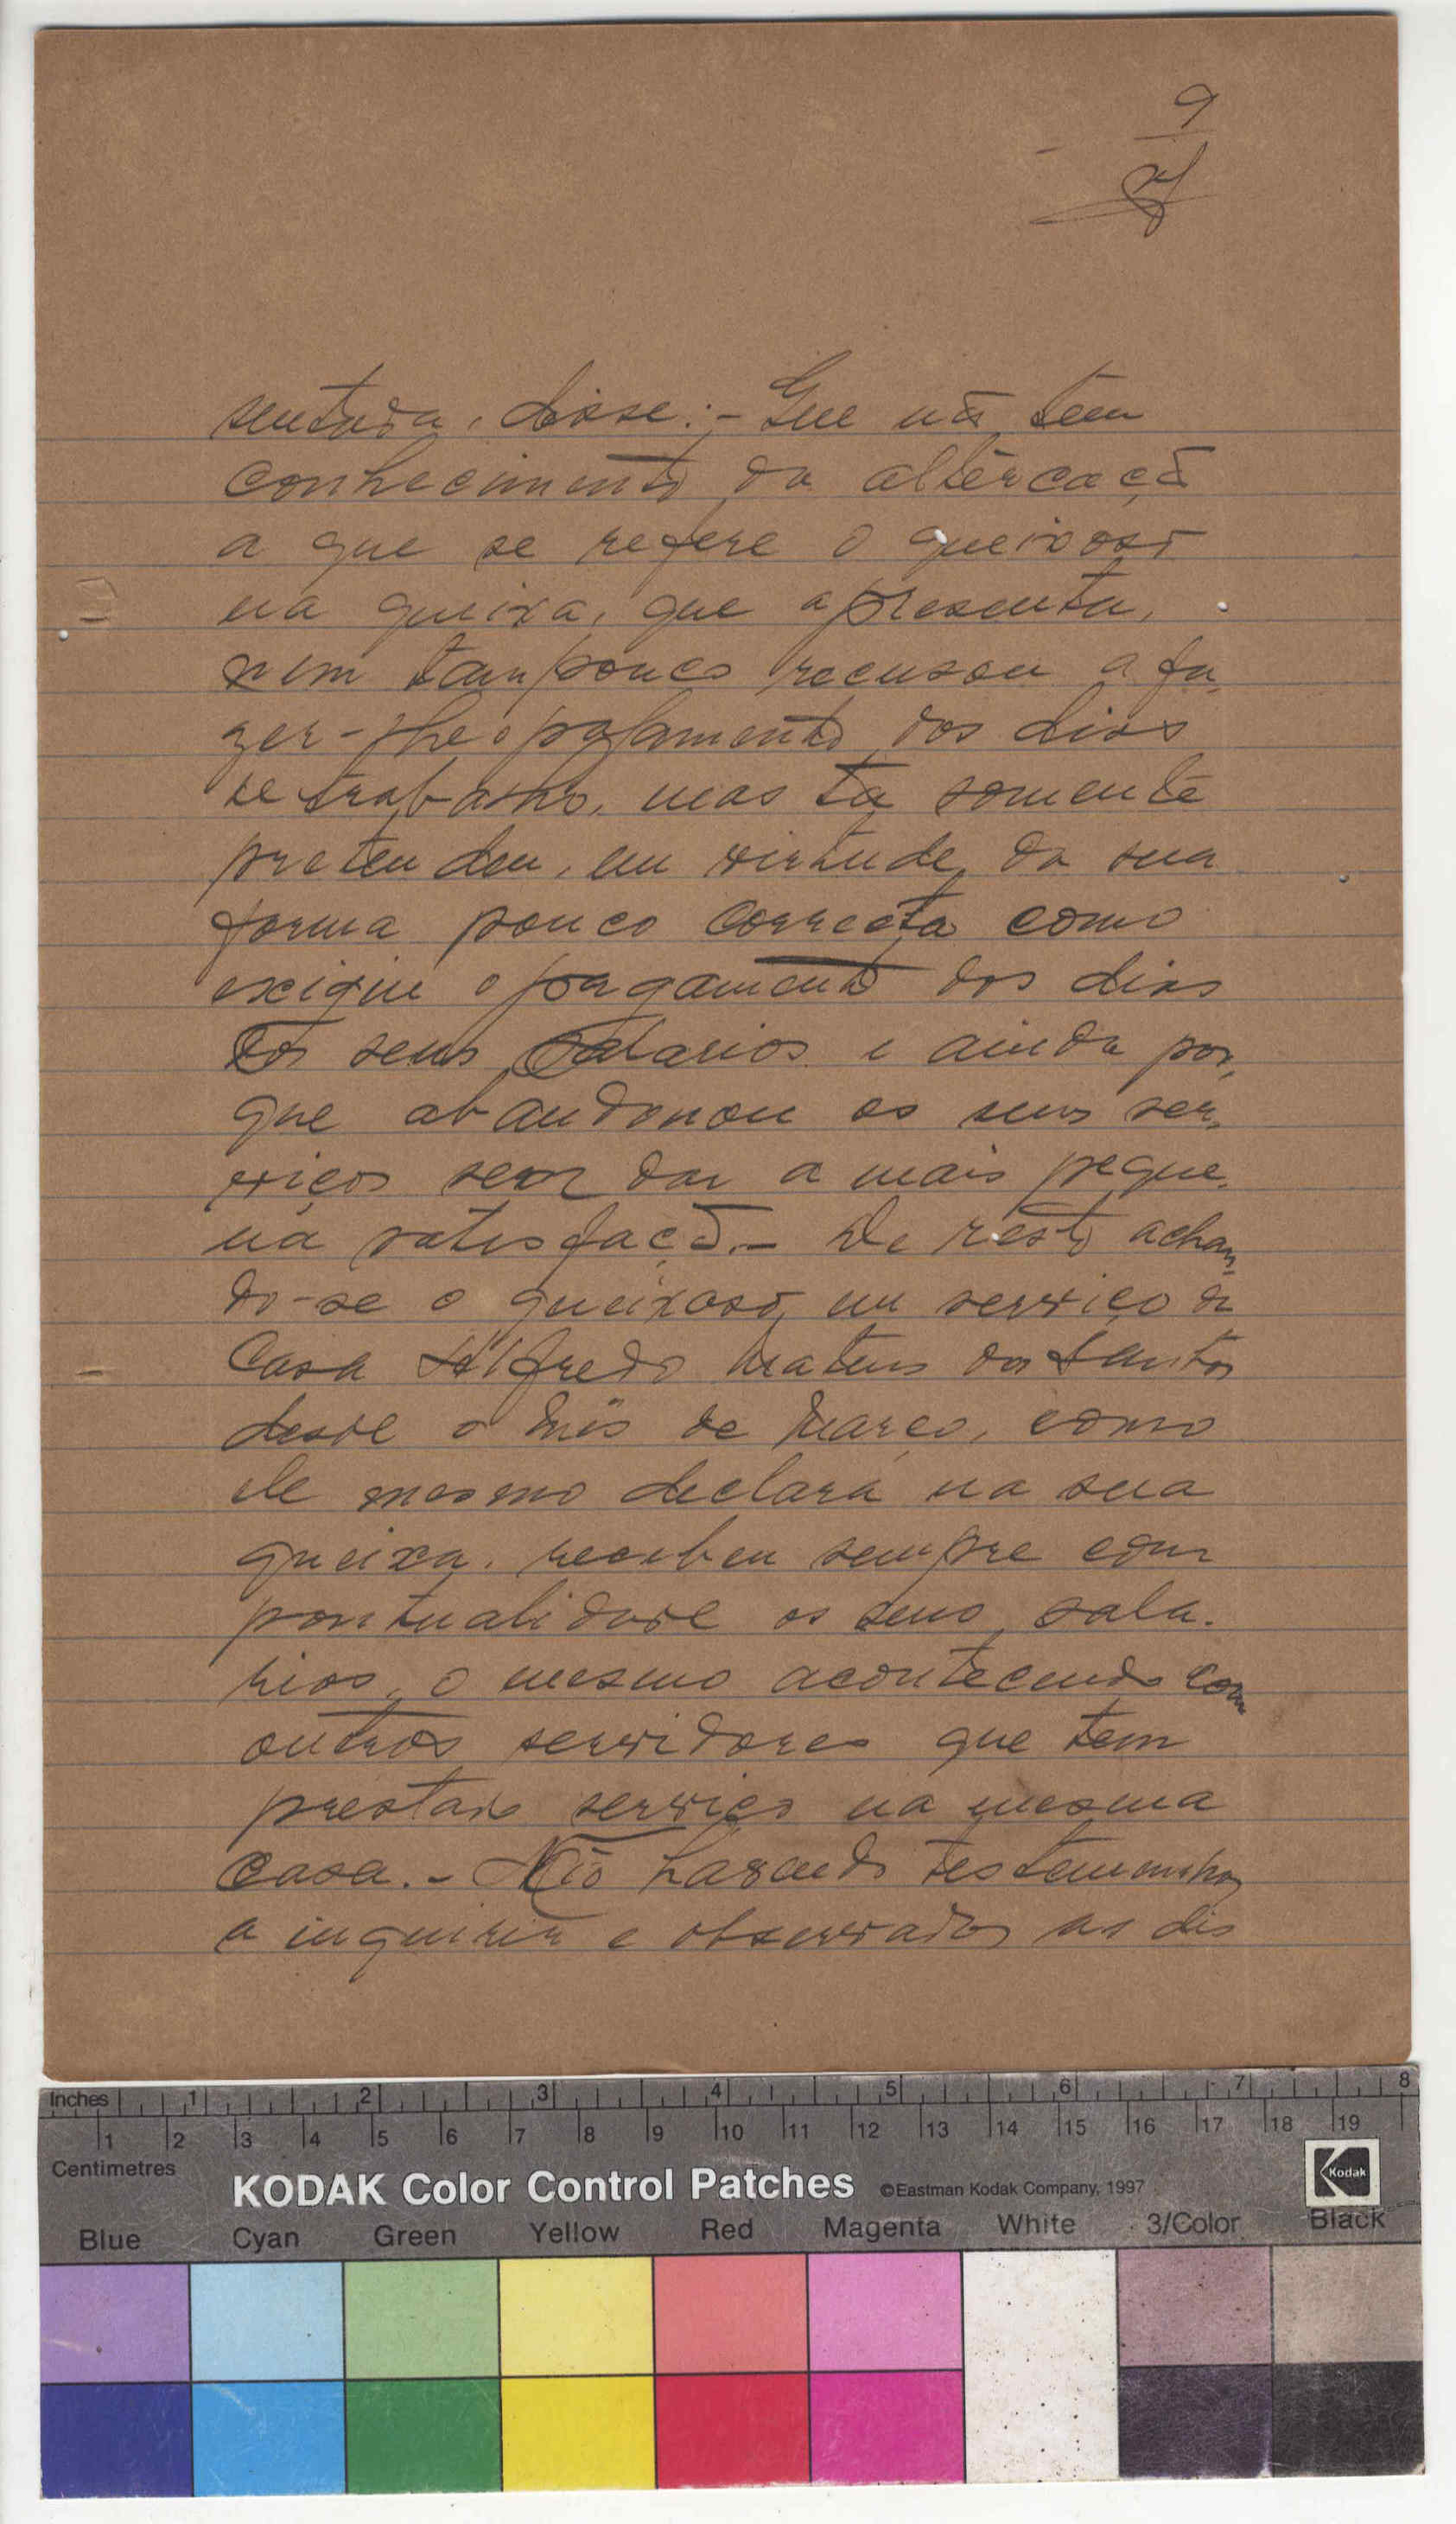 9
sentada, disse:- Que nã tem
conhecimento da altercaçã
a que se refere o queixoso
na queixa, que apresenta,
nem tampouco recusou a fa-
zer-lhe o pagamento dos dias
de trabalho, mas tã somente
pretendeu, em virtude da sua
forma pouco correcta como
exigiu o pagamento dos dias
dos seus salarios e ainda por-
que abandonou os seus ser-
viços sem dar a mais peque-
na satisfaçã.- De resto achan-
do-se o queixoso, no serviço da
Casa Alfredo Mateus dos Santos
desde o mês de Março, como
ele mesmo declara na sua
queixa, recebeu sempre com
pontualidade os seus sala-
rios, o mesmo acontecendo com
outros servidores que tem
prestado serviço na mesma
casa.- Não havendo testemunhas
a inquirir e observados as dis
Inches 1 2 3 4 5 6 7 8
1 2 3 4 5 6 7 8 9 10 11 12 13 14 15 16 17 18 19
Centimetres
KODAK Color Control Patches ©Eastman Kodak Company, 1997 Kodak
Blue Cyan Green Yellow Red Magenta White 3/Color Black